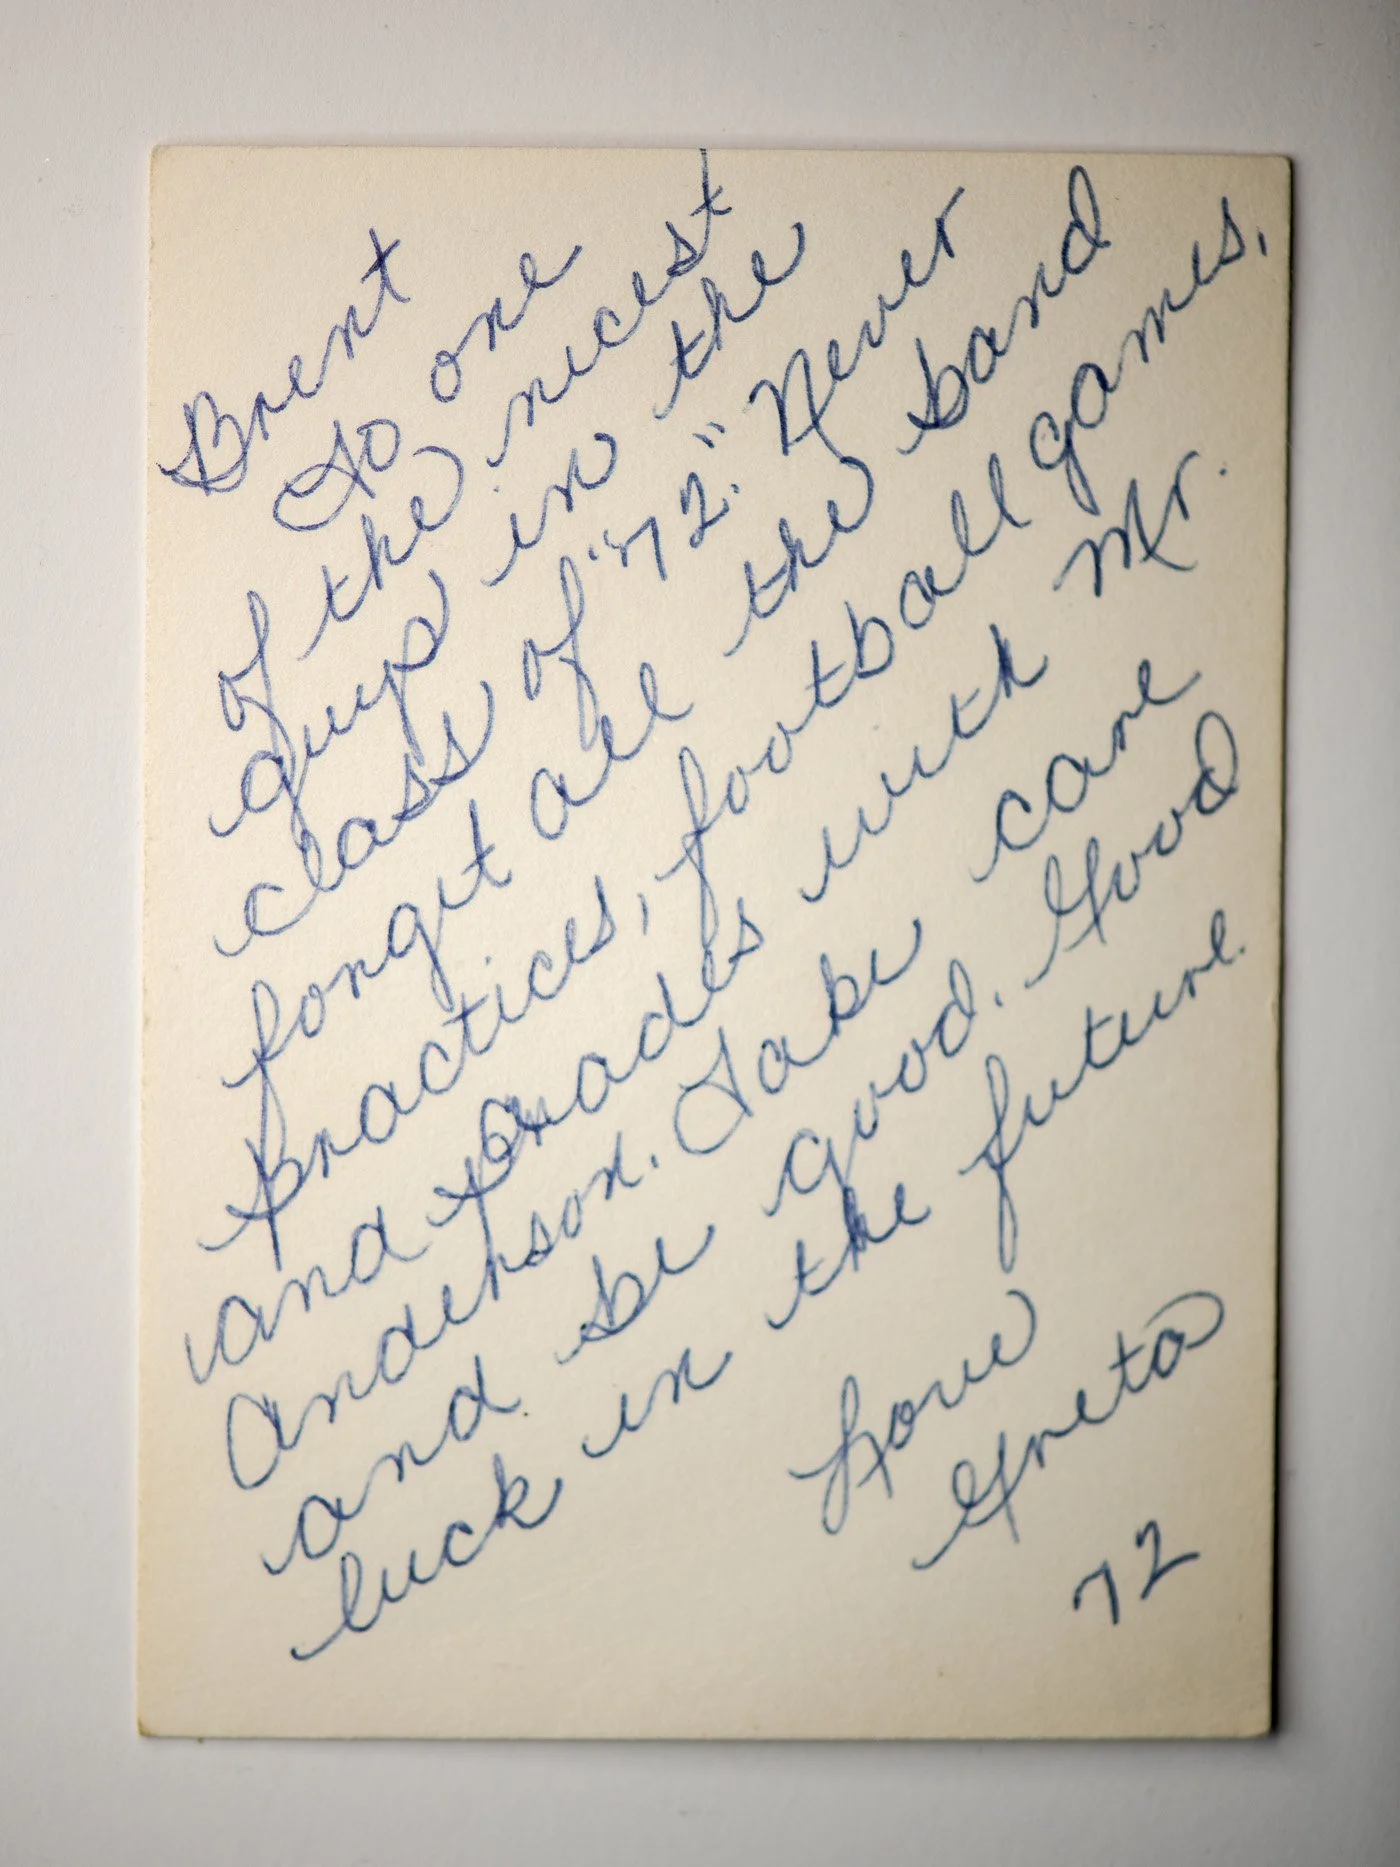 Brent
To one
of the nicest
guys in the
class of "72." Never
forget all the band
practices, football games,
and parades with Mr.
Anderson. Take care
and be good. Good
luck in the future.
Love
Greta
72